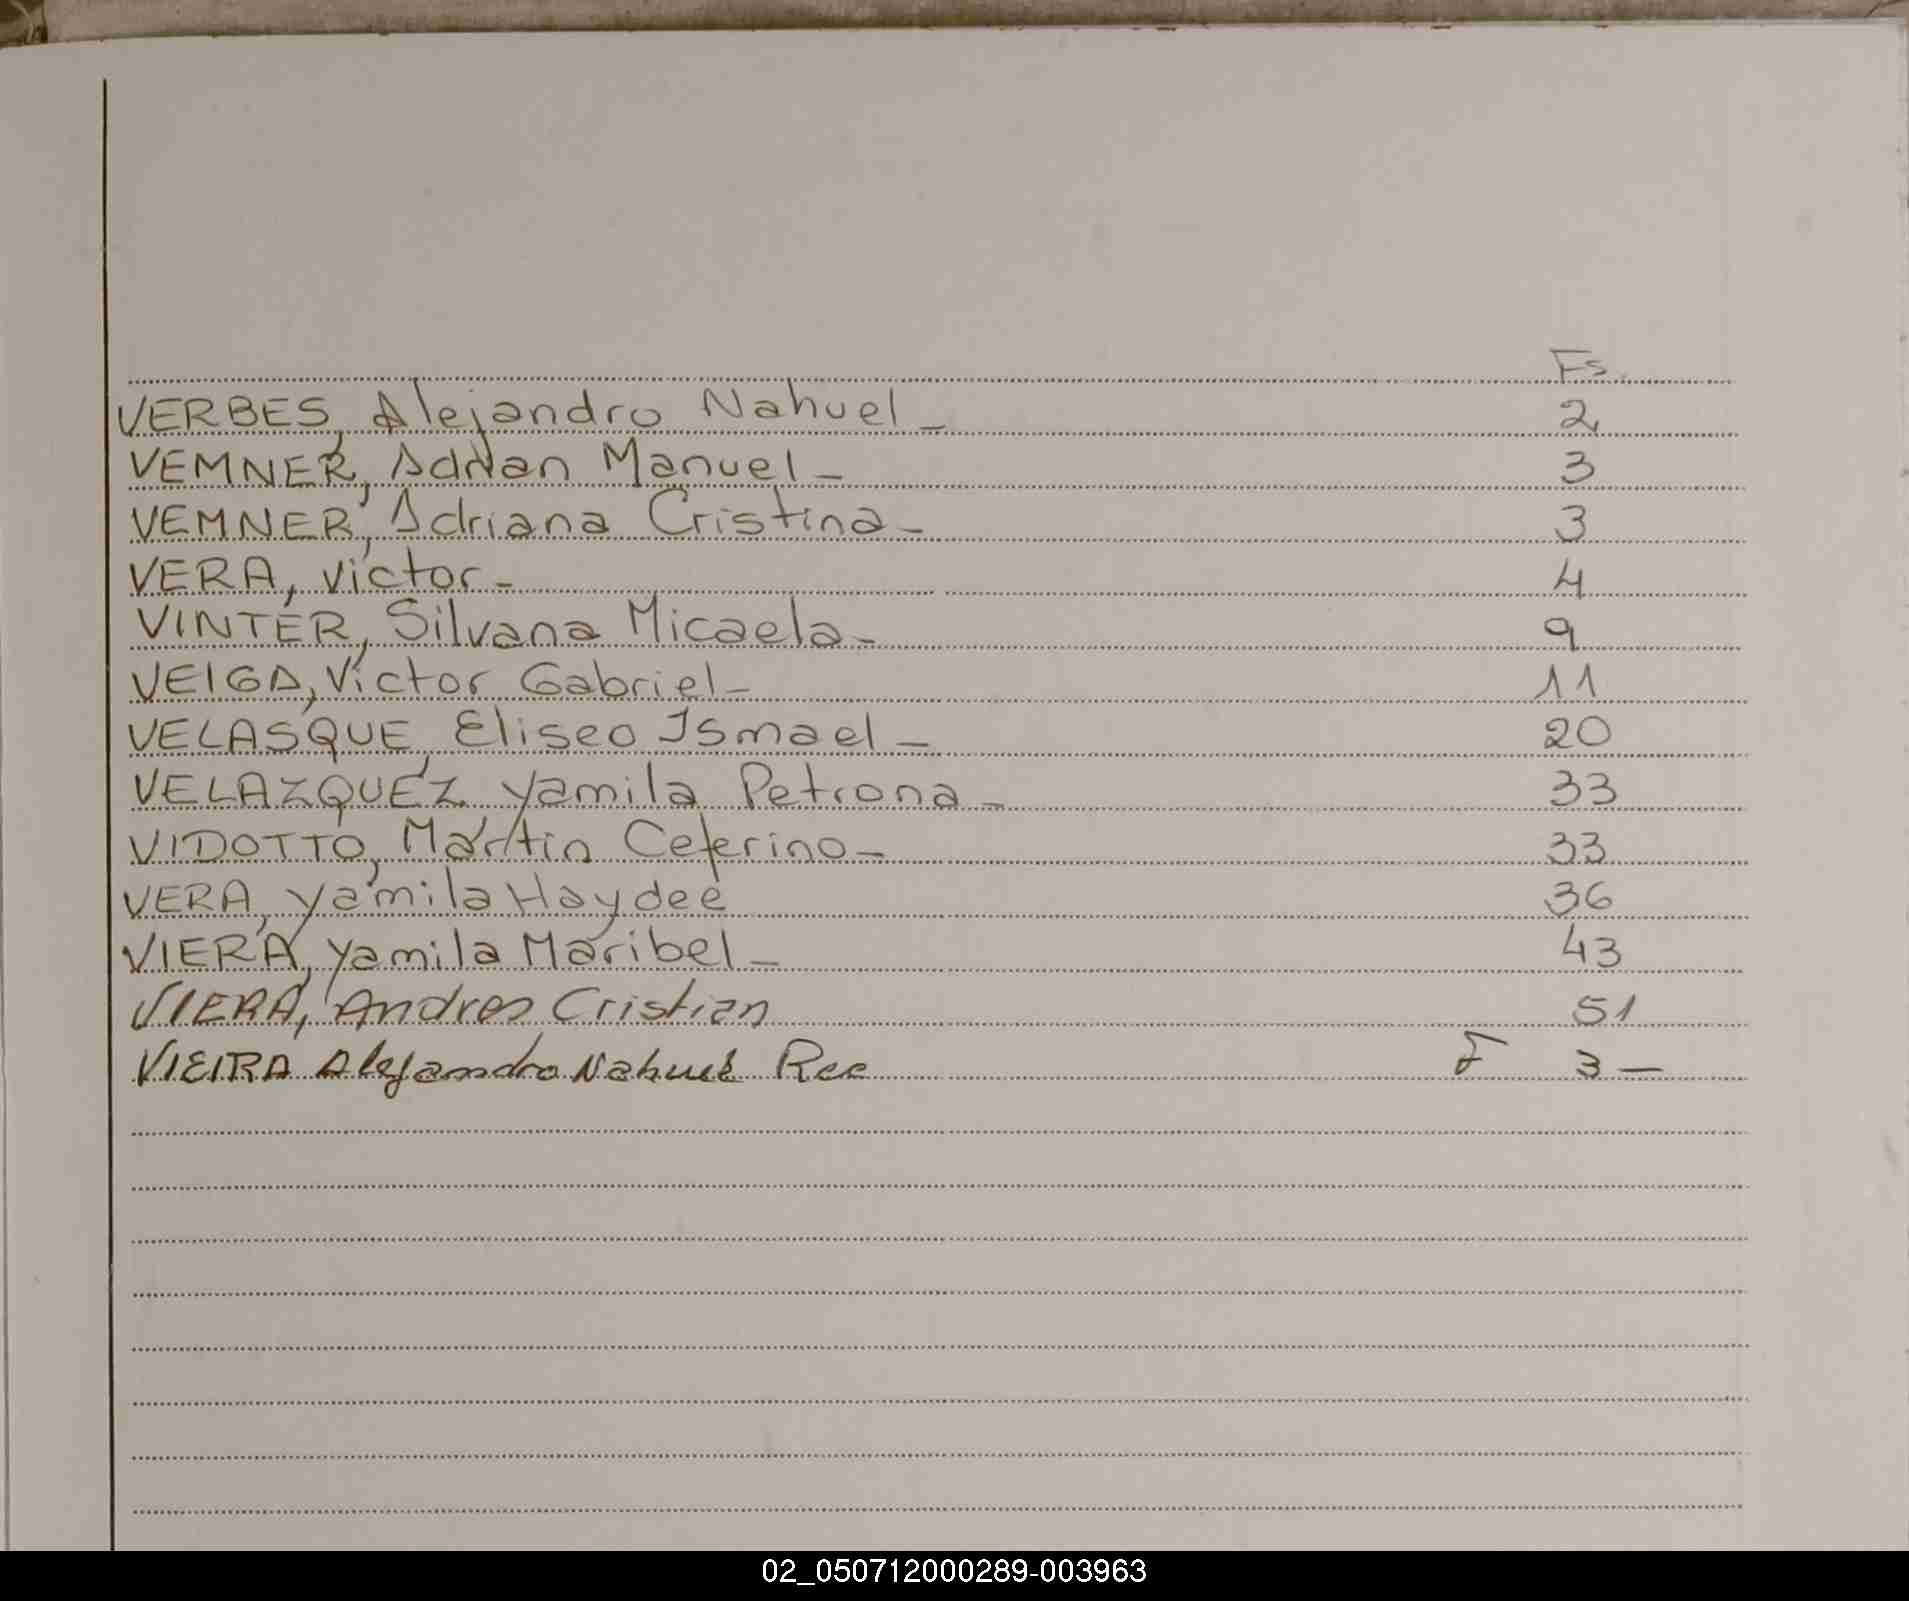 Fs.
VERBES, Alejandro Nahuel - 2
VEMNER, Adrian Manuel - 3
VEMNER, Adriana Cristina - 3
VERA, Victor - 4
VINTER, Silvana Micaela - 9
VEIGA, Victor Gabriel - 11
VELASQUE, Eliseo Ismael - 20
VELAZQUEZ, Yamila Petrona - 33
VIDOTTO, Martin Ceferino - 33
VERA, Yamila Haydee 36
VIERA, Yamila Maribel - 43
VIERA, Andres Cristian 51
VIEIRA Alejandro Nahuel Rec F 3 —
02_050712000289-003963